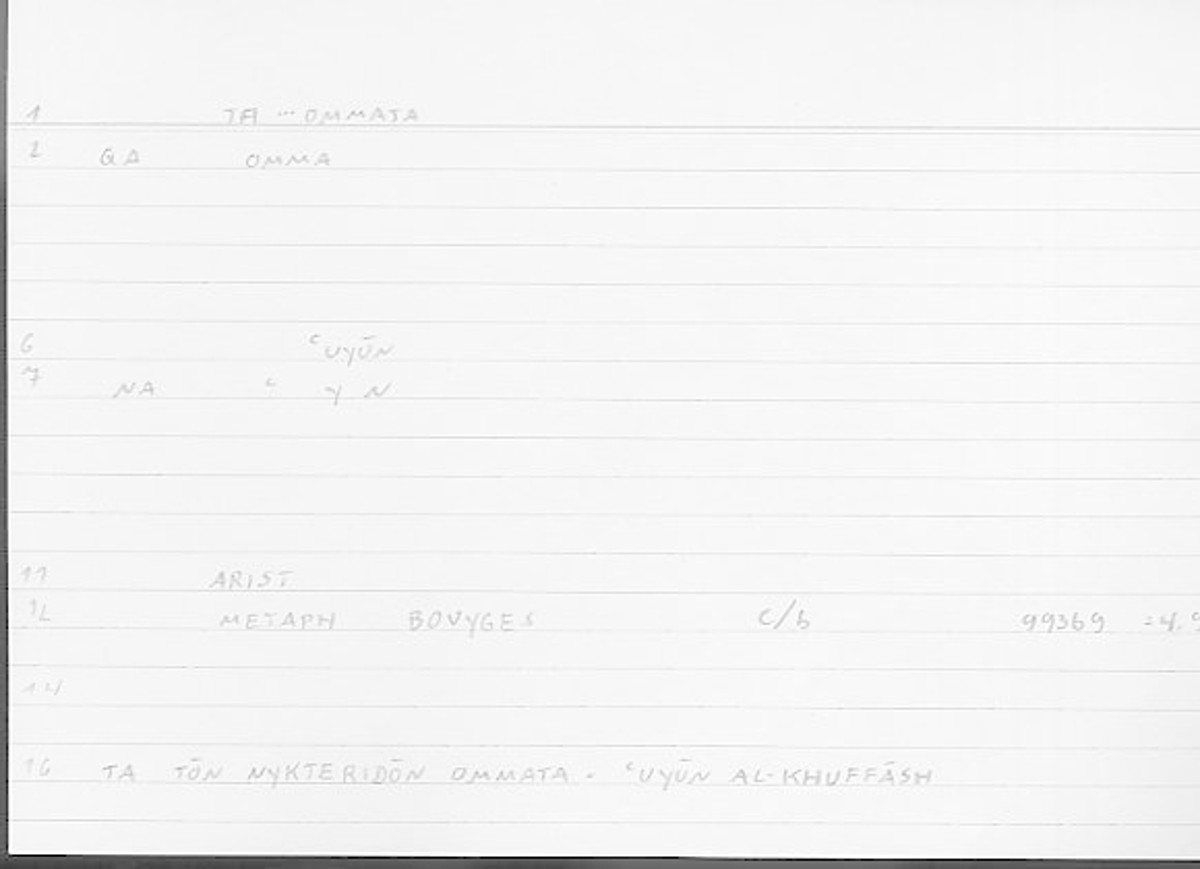 1 TA ... OMMATA
2 QA OMMA
6 ʿUYŪN
7 NA ʿ Y N
11 ARIST
12 METAPH BOUYGES c/b 99369 =4.9
14
16 TA TŌN NYKTERIDŌN OMMATA - ʿUYŪN AL-KHUFFĀSH